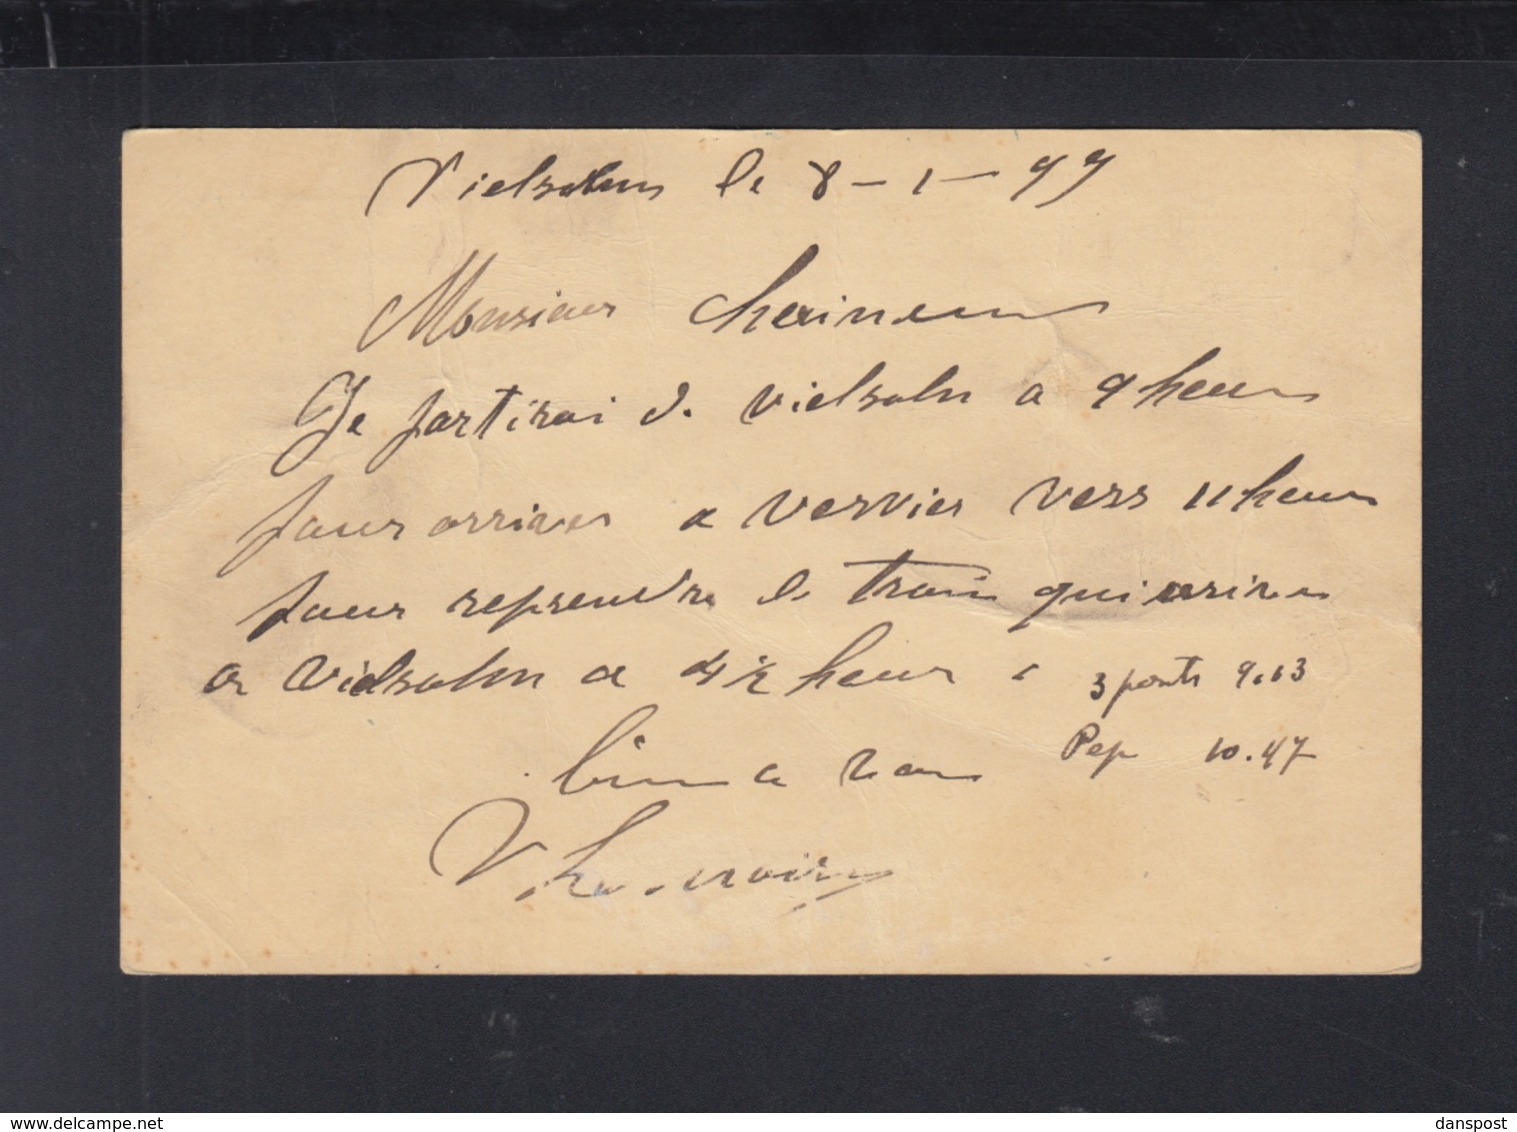 Vielsalm le 8 - 1 - 99
Monsieur
Je partirai de Vielsalm a 9 heurs
pour arriver a Vervier vers 11 heurs
pour reprendre le train qui arive
a Vielsalm a 4 1/2 heur
3 ponts 9.13
Pep 10.47
bien a vous
www.delcampe.net
danspost